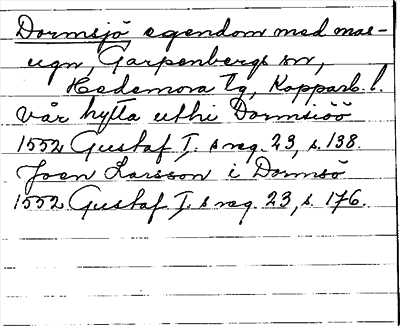 Dormsjö egendom med mas-
ugn, Garpenbergs sn,
Hedemora tg, Kopparb. l.
Vår hytta uthi Dormsiöö
1552 Gustaf I. s reg. 23, s. 138.
Joen Larsson i Dormsö
1552 Gustaf I. s reg. 23, s. 176.